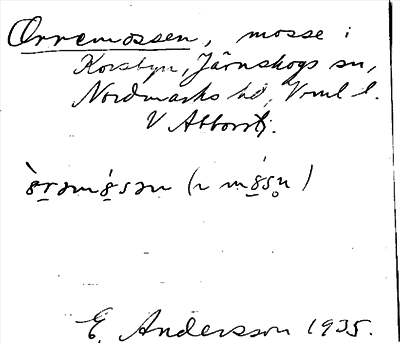 Orremossen, mosse i
Korsbyn, Järnskogs sn,
Nordmarks hd, Vrml l.
V Abborrtj.
(~
E. Andersson 1935.